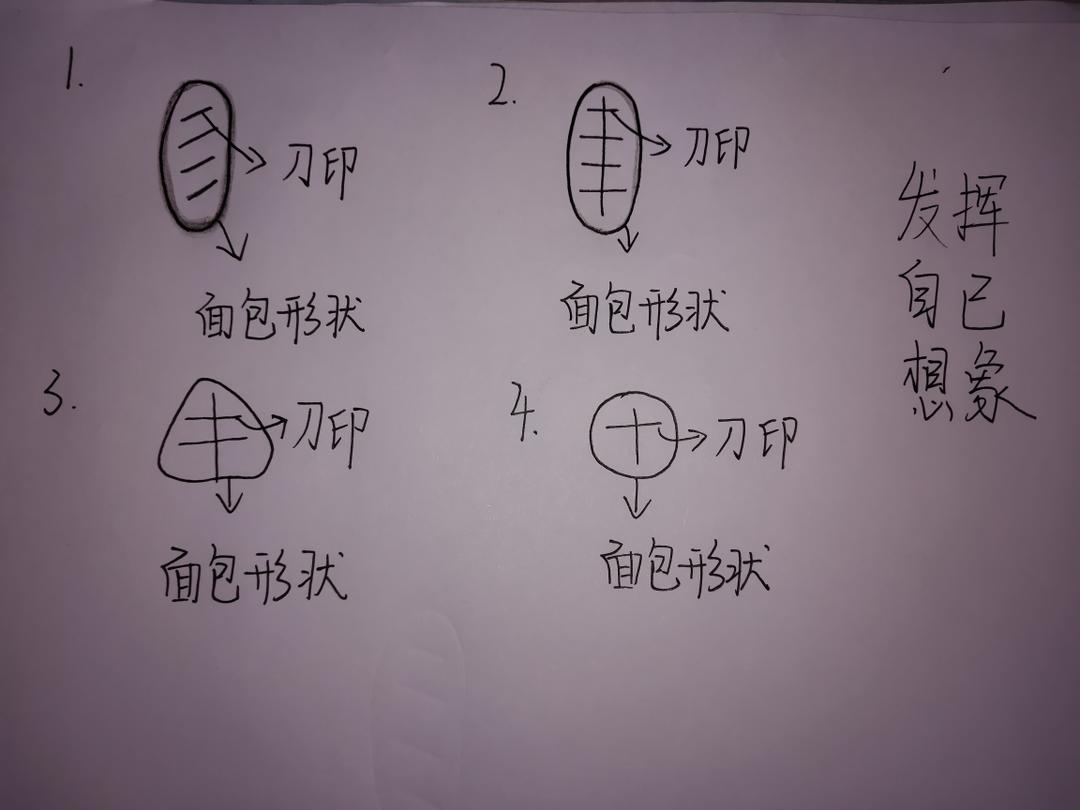 1.
刀印
面包形状
2.
刀印
面包形状
3.
刀印
面包形状
4.
刀印
面包形状
发挥
自己
想象